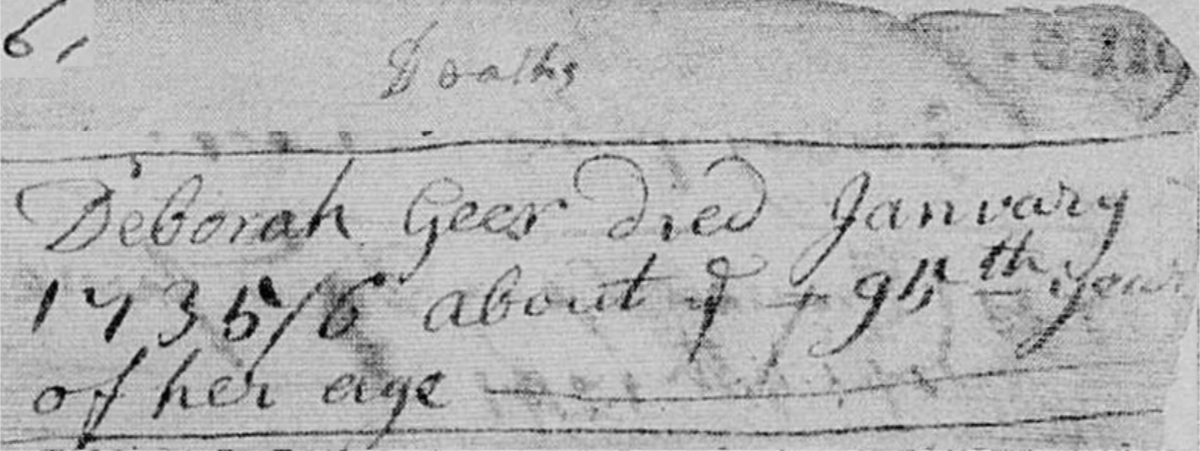 6,
Deaths
Deborah Geer died January
1735/6 about ye 95th year
of her age